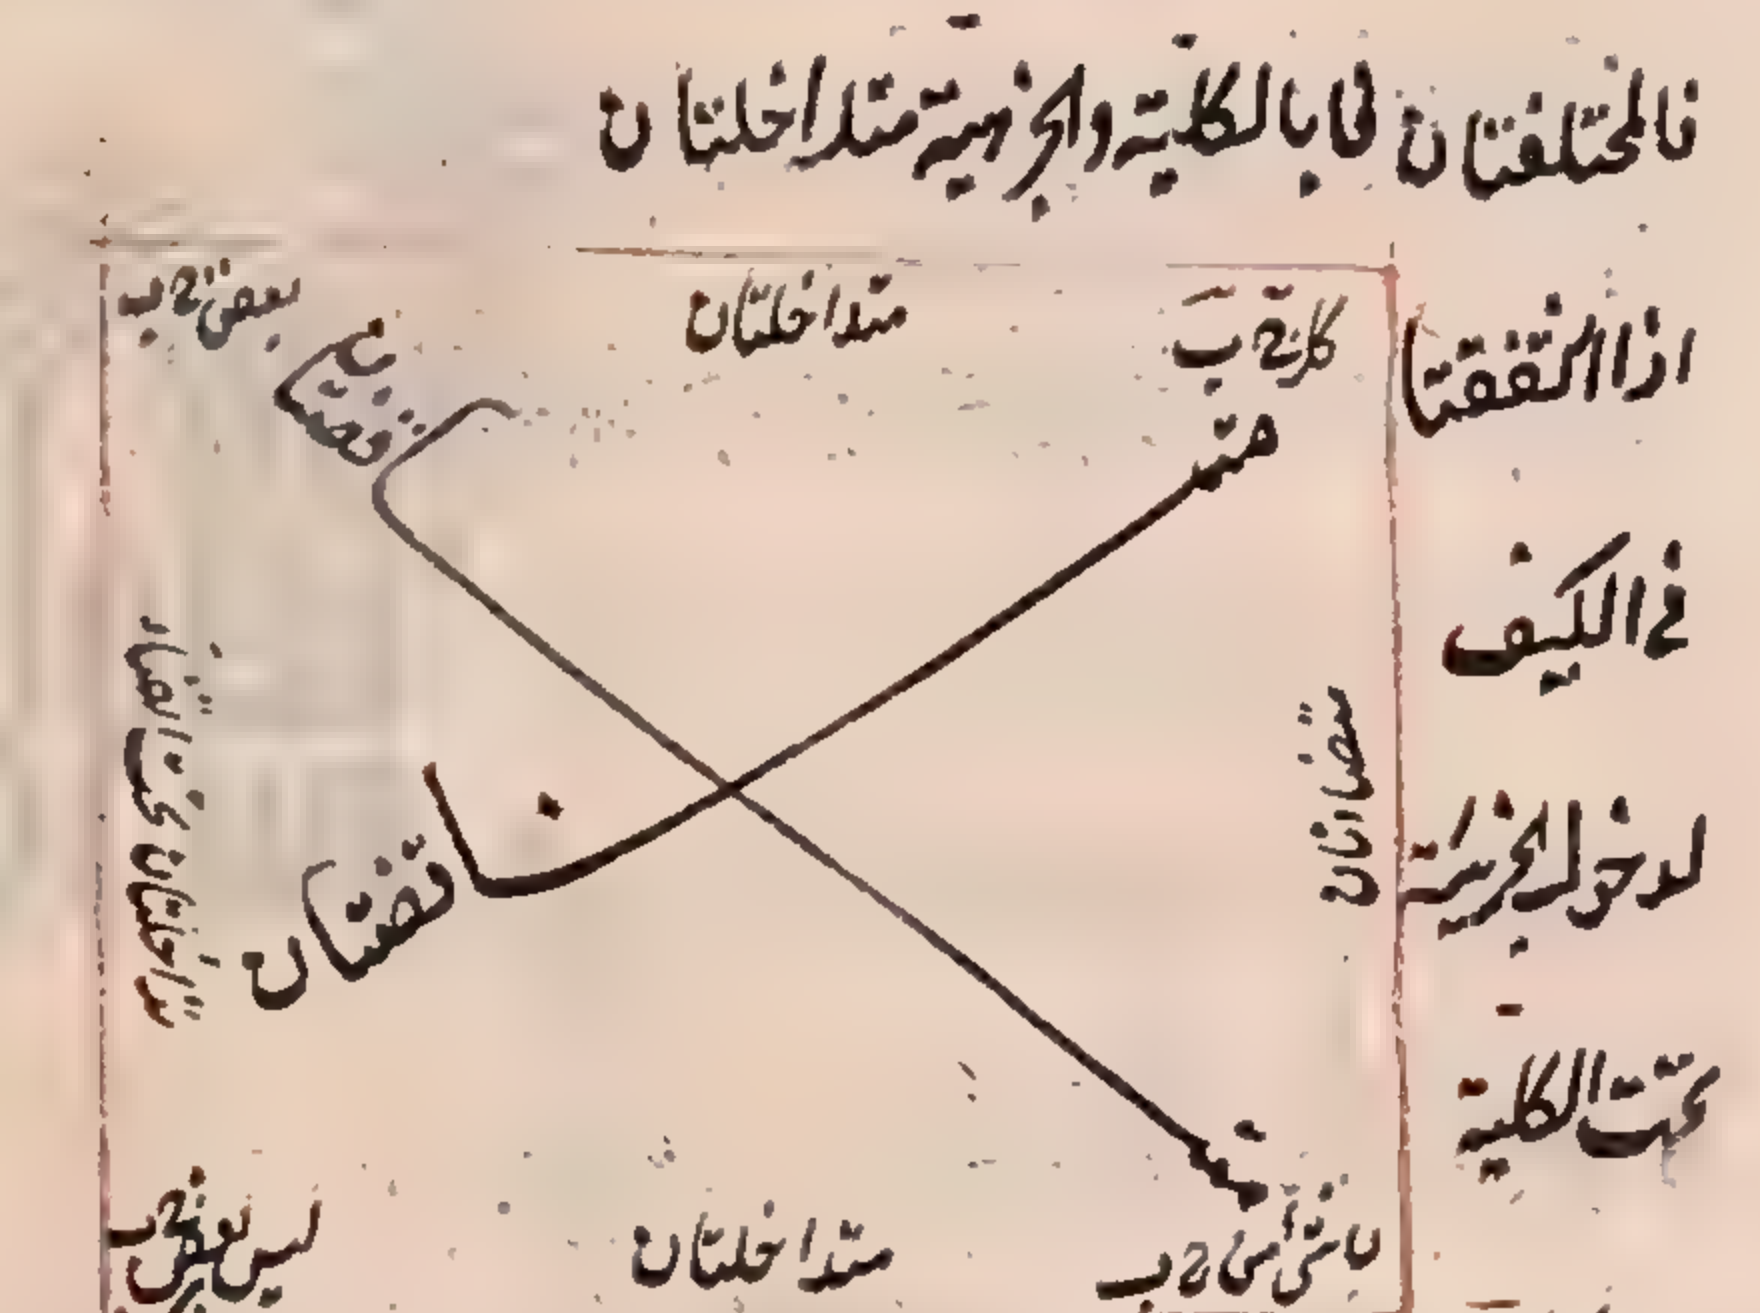 فالمختلفتان في بالكلية والجزئية متداخلتان
اذا اتفقتا
في الكيف
لدخول الجزئية
تحت الكلية
كل ج ب
متداخلتان
بعض ج ب
متناقضتان
متناقضتان
متضادتان
لا شئ من ج ب
متداخلتان
ليس بعض ج ب